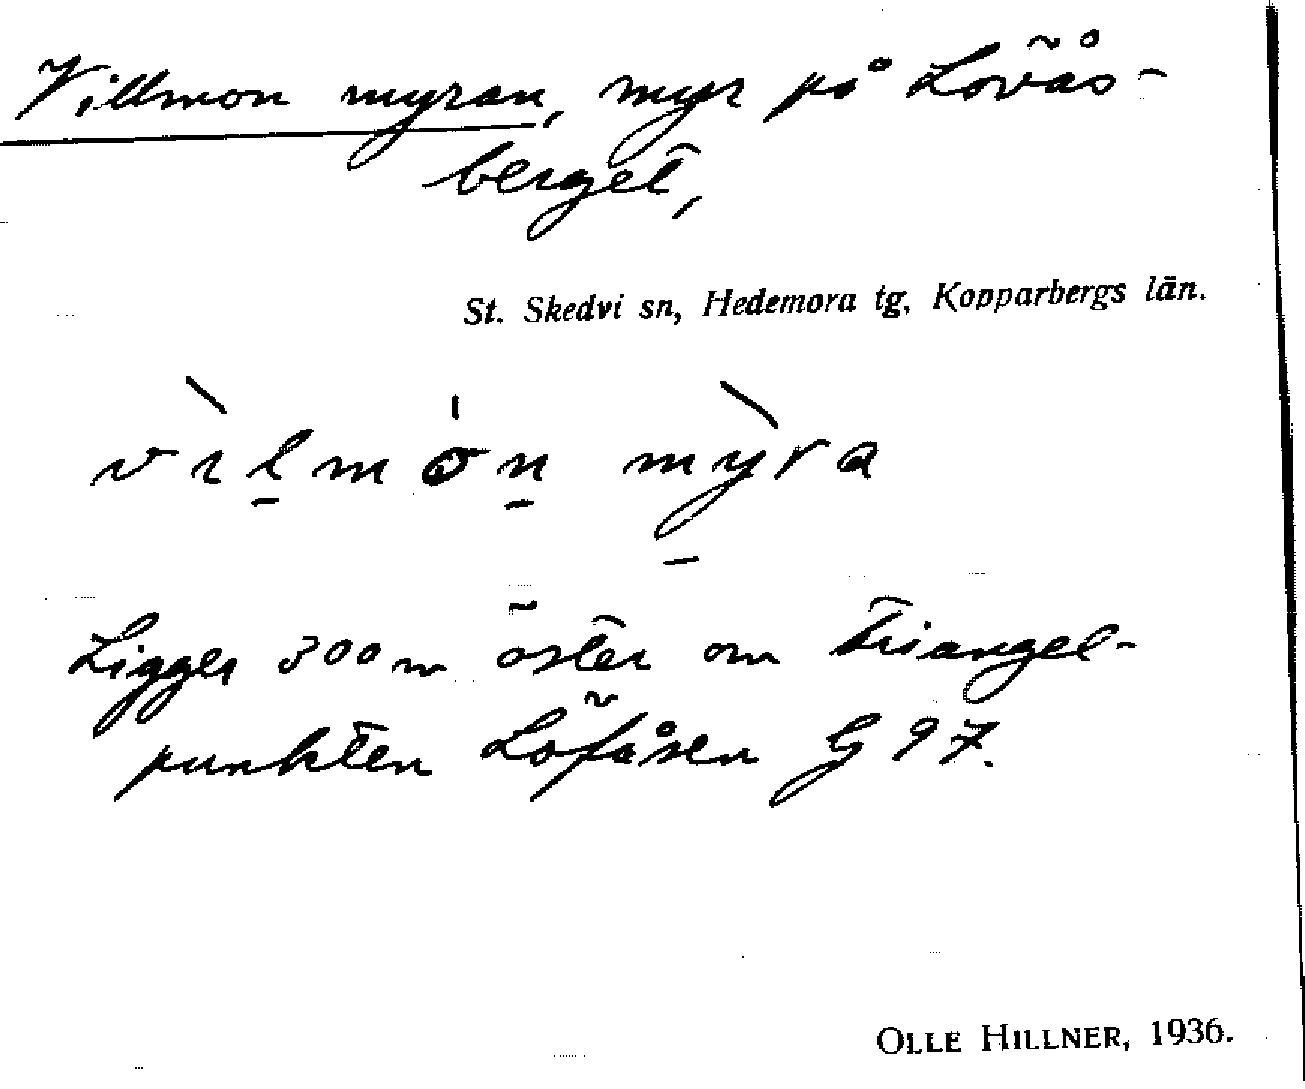 Villmon myran, myr på Lövås-
berget,
St. Skedvi sn, Hedemora tg, Kopparbergs län.
vìlmón myra
Ligger 300 m öster om triangel-
punkten Löfåsen G 97.
OLLE HILLNER, 1936.